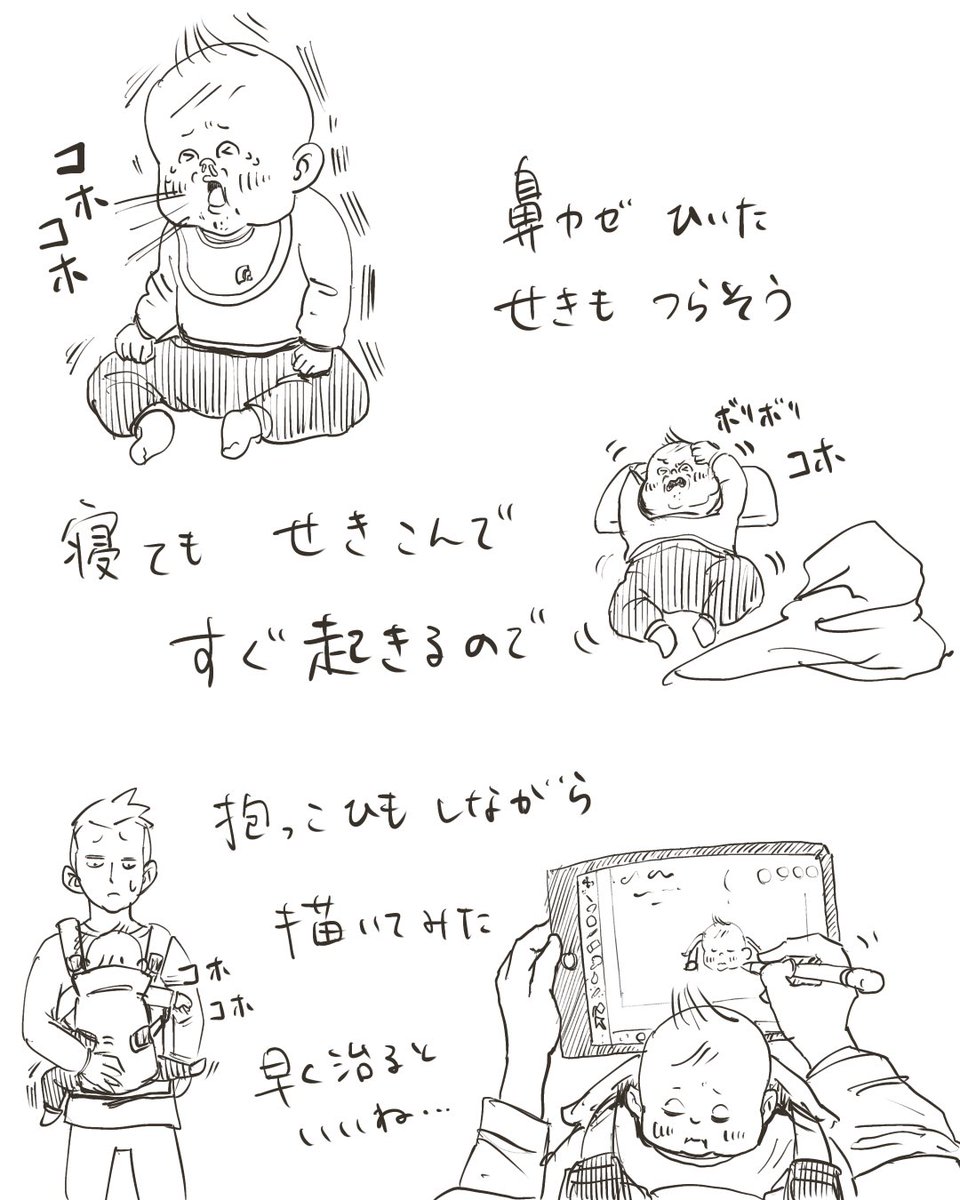 コホ
コホ
鼻カゼ ひいた
せきも つらそう
ボリボリ
コホ
寝ても せきこんで
すぐ起きるので
抱っこひも しながら
描いてみた
コホ
コホ
早く治ると
いいね…